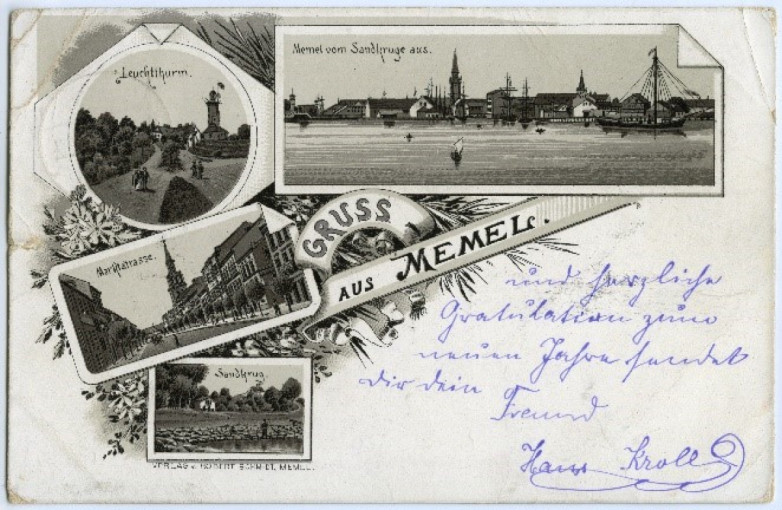 Leuchtthurm.
Memel vom Sandkruge aus.
Marktstrasse.
GRUSS
AUS MEMEL.
Sandkrug.
VERLAG v. ROBERT SCHMIDT, MEMEL.
und herzliche
Gratulation zum
neuen Jahre sendet
Dir dein
Freund
Hans Kroll